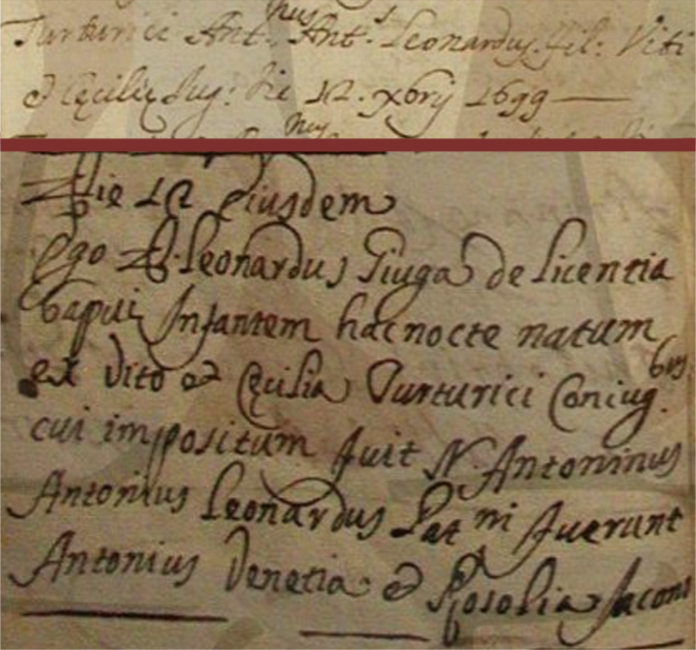 Turturici Ant.nus Ant.s Leonardus fil: Viti
et Cęcilię Jug: die 12. Xbrij 1699
Die 12 eiusdem
Ego D. Leonardus Giuga de licentia
bapui Infantem hac nocte natum
ex Vito et Cęcilia Turturici Coniug.bus
cui impositum fuit N. Antoninus
Antonius Leonardus Pat.ni fuerunt
Antonius Venetia et Rosolia